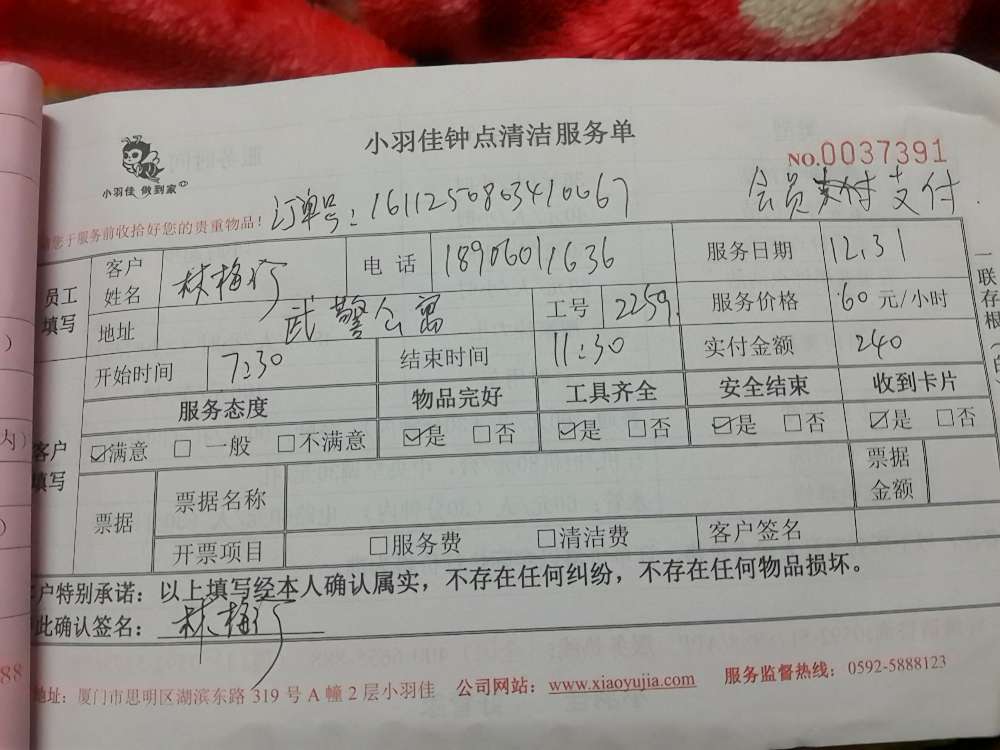 小羽佳钟点清洁服务单
NO.0037391
小羽佳 做到家
您于服务前收拾好您的贵重物品！
订单号：1611250803410067
会员支付
员工填写
客户姓名 林梅 电话 18906011636 服务日期 12.31
地址 武警公寓 工号 2259 服务价格 60 元/小时
开始时间 7:30 结束时间 11:30 实付金额 240
客户填写
服务态度 物品完好 工具齐全 安全结束 收到卡片
☑满意 □一般 □不满意 ☑是 □否 ☑是 □否 ☑是 □否 ☑是 □否
票据 票据名称 票据金额
开票项目 □服务费 □清洁费 客户签名
客户特别承诺：以上填写经本人确认属实，不存在任何纠纷，不存在任何物品损坏。
此确认签名：林梅
地址：厦门市思明区湖滨东路 319 号 A 幢 2 层小羽佳 公司网站：www.xiaoyujia.com 服务监督热线：0592-5888123
一联存根